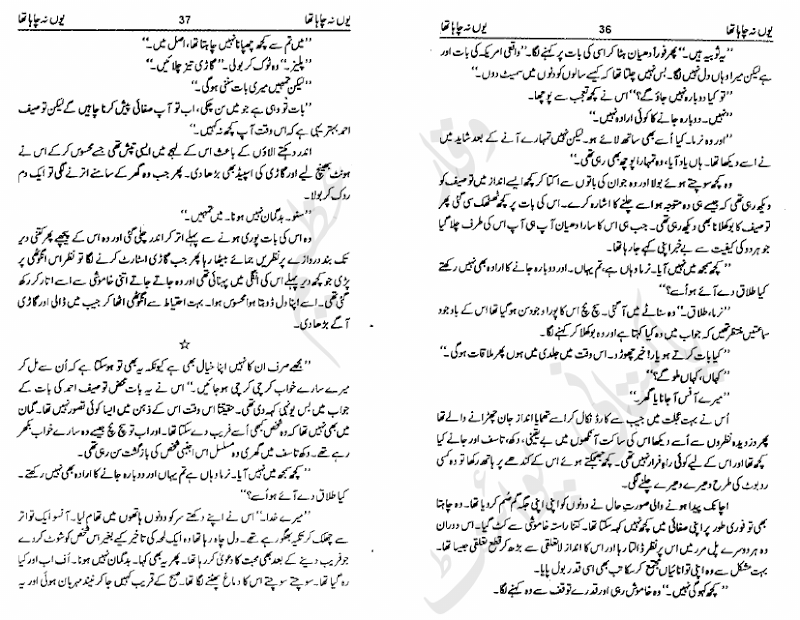 یوں نہ چاہا تھا 36 یوں نہ چاہا تھا
’’یہ ثوبیہ ہیں۔‘‘ پھر فوراً دھیان ہٹا کر اسی کی بات پر کہنے لگا۔ ’’واقعی امریکہ کی بات اور
ہے لیکن میرا وہاں دل نہیں لگا۔ بس نہیں چلتا تھا کہ کیسے سالوں کو دنوں میں سمیٹ دوں۔‘‘
’’تو کیا دوبارہ نہیں جاؤ گے؟‘‘ اس نے کچھ تعجب سے پوچھا۔
’’نہیں۔ دوبارہ جانے کا کوئی ارادہ نہیں۔‘‘
’’اور وہ نرما۔ کیا اُسے بھی ساتھ لائے ہو۔ لیکن نہیں تمہارے آنے کے بعد شاید میں
نے اسے دیکھا تھا۔ ہاں یاد آیا، وہ تمہارا پوچھ بھی رہی تھی۔‘‘
وہ کچھ سوچتے ہوئے بولا اور وہ جو ان کی باتوں سے اکتا کر کچھ ایسے انداز میں توصیف کو
دیکھ رہی تھی کہ جیسے ہی وہ متوجہ ہوا سے چلنے کا اشارہ کرے۔ اس کی بات پر کچھ ٹھٹھک سی گئی پھر
توصیف کا بوکھلانا بھی دیکھ رہی تھی۔ جب ہی اس کا سارا دھیان آپ ہی آپ اس کی طرف چلا گیا
جو ہر دو کی کیفیت سے بے خبر اپنی کہے جا رہا تھا۔
’’کچھ سمجھ میں نہیں آیا۔ نرما وہاں ہے، تم یہاں۔ اور دوبارہ جانے کا ارادہ بھی نہیں رکھتے
کیا طلاق دے آئے ہو اُسے؟‘‘
’’نرما، طلاق۔‘‘ وہ سناٹے میں آ گئی۔ سچ مچ اس کا پورا وجود سن ہو گیا تھا اس کے باوجود
سماعتیں منتظر تھیں کہ جواب میں وہ کیا کہتا ہے اور وہ بوکھلا کر کہنے لگا۔
’’کیا بات کرتے ہو یار! خیر چھوڑو۔ اس وقت میں جلدی میں ہوں پھر ملاقات ہو گی۔‘‘
’’کہاں، کہاں ملو گے؟‘‘
’’میرے آفس آ جانا یا گھر۔‘‘
اُس نے بہت عجلت میں جیب سے کارڈ نکال کر اسے تھمایا انداز جان چھڑانے والے تھا
پھر دزدیدہ نظروں سے اُسے دیکھا اس کی ساکت آنکھوں میں بے یقینی، دکھ، تاسف اور جانے کیا
کچھ تھا اور اس کے لیے کوئی راہ فرار نہیں تھی۔ کچھ جھجکتے ہوئے اس کے کندھے پر ہاتھ رکھا تو وہ کسی
روبوٹ کی طرح دھیرے دھیرے چلنے لگی۔
اچانک پیدا ہونے والی صورت حال نے دونوں کو اپنی اپنی جگہ گم صُم کر دیا تھا۔ وہ چاہتا
بھی تو فوری طور پر اپنی صفائی میں کچھ نہیں کہہ سکتا تھا۔ کتنا راستہ خاموشی سے کٹ گیا۔ اس دوران
وہ ہر دوسرے پل مرر میں اس پر نظر ڈالتا رہا اور اس کا انداز لا تعلقی سے بڑھ کر قطع تعلقی جیسا تھا۔
بہت مشکل سے وہ اپنی توانائیاں مجتمع کر سکا تب بھی اسی قدر بول پایا۔
’’کچھ کہو گی نہیں۔‘‘ وہ خاموش رہی اور قدرے توقف سے وہ کہنے لگا۔
یوں نہ چاہا تھا 37 یوں نہ چاہا تھا
’’میں تم سے کچھ چھپانا نہیں چاہتا تھا، اصل میں۔‘‘
’’پلیز۔‘‘ وہ ٹوک کر بولی۔ ’’گاڑی تیز چلائیں۔‘‘
’’لیکن تمہیں میری بات سننی ہو گی۔‘‘
’’بات تو وہی ہے جو میں سن چکی، اب تو آپ صفائی پیش کرنا چاہیں گے لیکن توصیف
احمد بہتر یہی ہے کہ اس وقت آپ کچھ نہ کہیں۔‘‘
اندر دہکتے الاؤں کے باعث اس کے لہجے میں ایسی تپش تھی جسے محسوس کر کے اس نے
ہونٹ بھینچ لیے اور گاڑی کی اسپیڈ بھی بڑھا دی۔ پھر جب وہ گھر کے سامنے اترنے لگی تو ایک دم
روک کر بولا۔
’’سنو۔ بدگمان نہیں ہونا۔ میں تمہیں۔‘‘
وہ اس کی بات پوری ہونے سے پہلے اتر کر اندر چلی گئی اور وہ اس کے پیچھے پھر کتنی دیر
تک بند دروازے پر نظریں جمائے بیٹھا رہا پھر جب گاڑی اسٹارٹ کرنے لگا تو نظر اس انگوٹھی پر
پڑی جو کچھ دیر پہلے اس کی انگلی میں پہنائی تھی اور وہ جاتے جاتے اتنی خاموشی سے اسے اتار کر رکھ
گئی تھی۔ اسے اپنا دل ڈوبتا ہوا محسوس ہوا۔ بہت احتیاط سے انگوٹھی اٹھا کر جیب میں ڈالی اور گاڑی
آگے بڑھا دی۔
☆
’’مجھے صرف ان کا نہیں اپنا خیال بھی ہے کیونکہ یہ بھی تو ہو سکتا ہے کہ اُن سے مل کر
میرے سارے خواب کرچی کرچی ہو جائیں۔‘‘ اس نے یہ بات محض توصیف احمد کی بات کے
جواب میں بس یونہی کہہ دی تھی۔ حقیقتاً اس وقت اس کے ذہن میں ایسا کوئی تصور نہیں تھا۔ گمان
میں بھی نہیں تھا کہ وہ شخص کبھی اُسے فریب دے سکتا تھا۔ اور اب تو سچ مچ جیسے وہ سارے خواب بکھر
رہے تھے۔ دکھ تاسف میں گھری وہ مسلسل اس اجنبی شخص کی بازگشت سن رہی تھی۔
’’کچھ سمجھ میں نہیں آیا۔ نرما وہاں ہے تم یہاں اور دوبارہ جانے کا ارادہ بھی نہیں رکھتے۔
کیا طلاق دے آئے ہو اُسے؟‘‘
’’میرے خدا۔‘‘ اس نے اپنے دکھتے سر کو دونوں ہاتھوں میں تھام لیا۔ آنسو ایک تواتر
سے چھلک کر تکیہ بھگو رہے تھے۔ دل چاہ رہا تھا وہ ایک لمحہ کی تاخیر کیے بغیر اس شخص کو شوٹ کر دے
جو فریب دینے کے بعد بھی محبت کا دعویٰ کر رہا تھا۔ پھر یہ بھی کہا۔ بدگمان نہیں ہونا۔ اُف اب اور کیا
رہ گیا تھا۔ سوچتے سوچتے اس کا دماغ پھٹنے لگا تھا۔ صبح کے قریب کہیں جا کر نیند مہربان ہوئی اور یہ